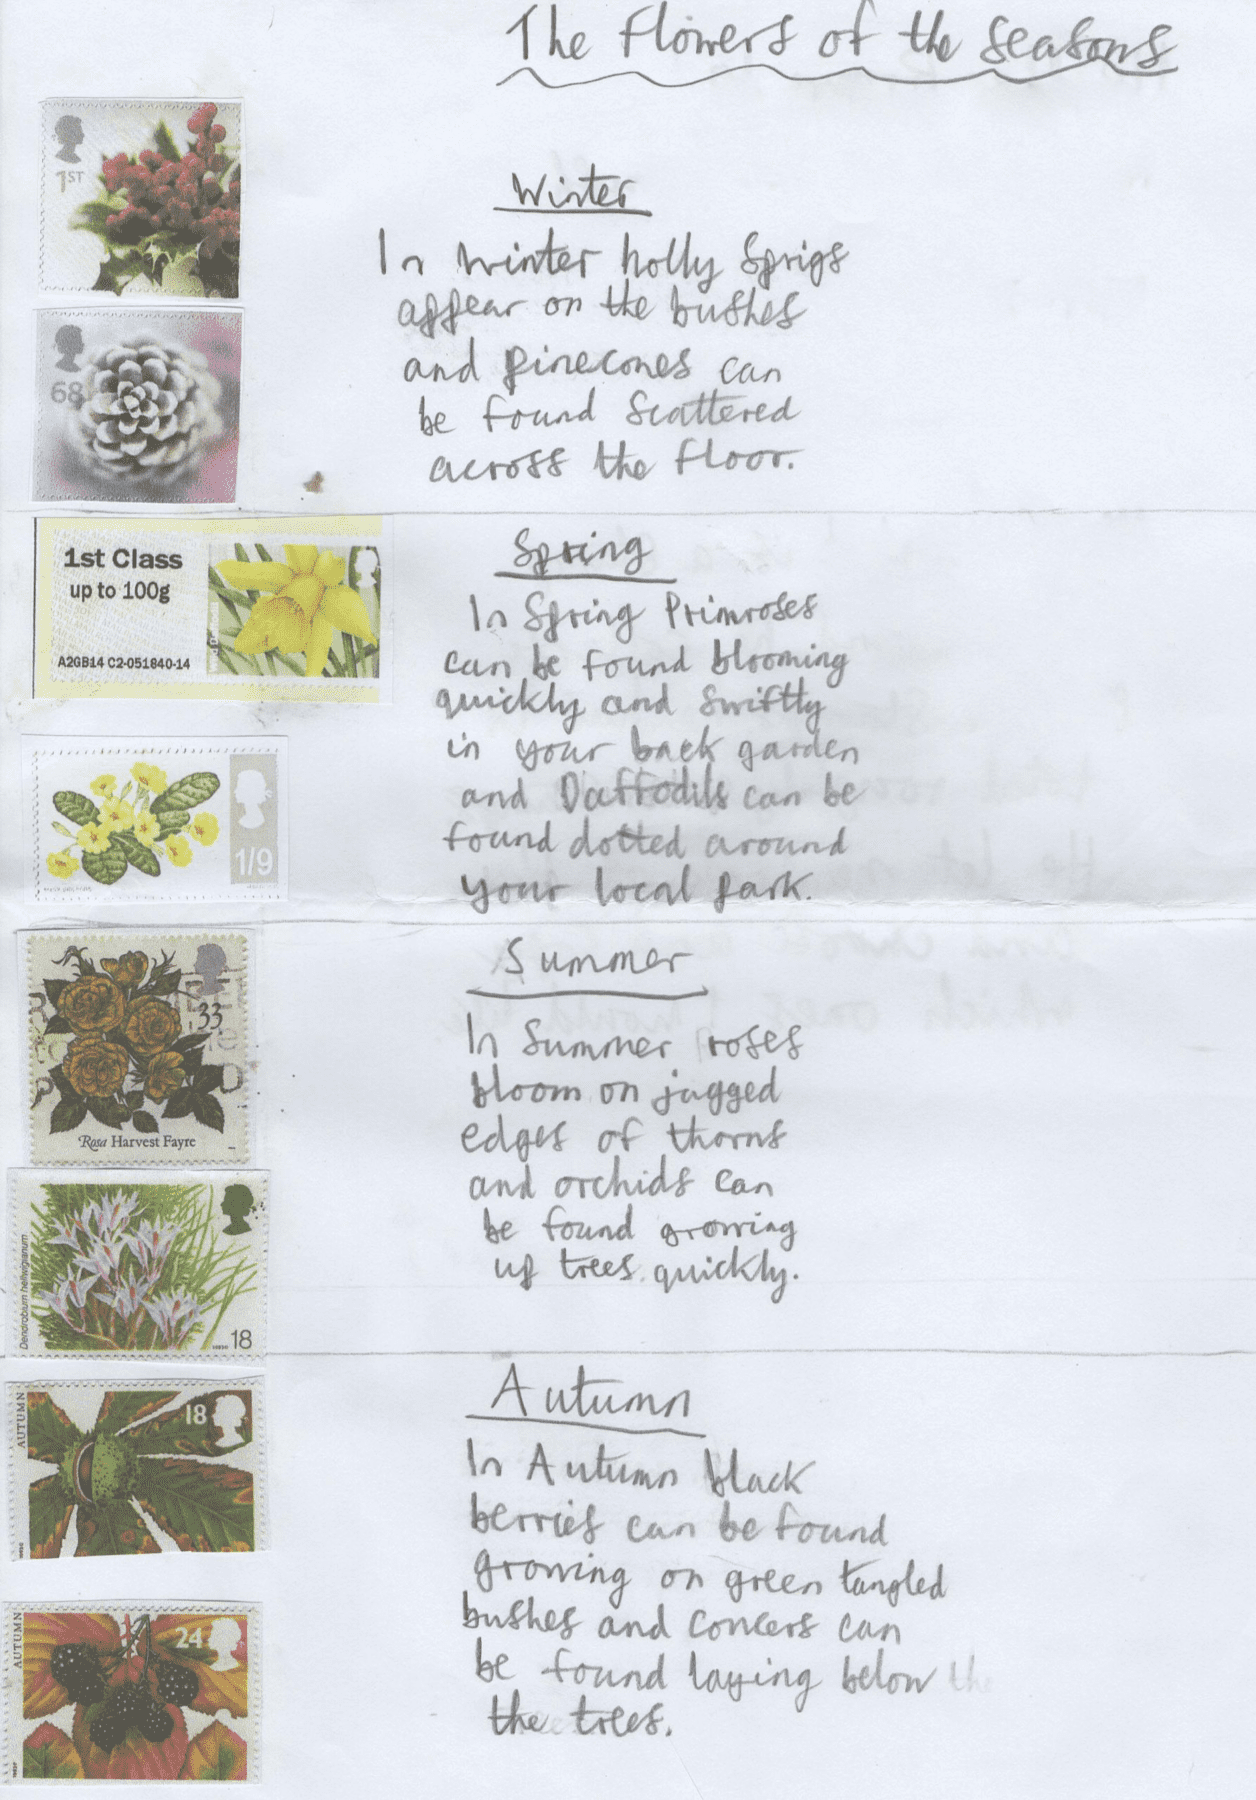 The Flowers of the seasons
1ST
Winter
In winter holly Sprigs
appear on the bushes
and pinecones can
be found scattered
across the floor.
68
1st Class
up to 100g
A2GB14 C2-051840-14
Spring
In Spring Primroses
can be found blooming
quickly and swiftly
in your back garden
and Daffodils can be
found dotted around
your local park.
1/9
33
Rosa Harvest Fayre
Summer
In Summer roses
bloom on jagged
edges of thorns
and orchids can
be found growing
up trees quickly.
Dendrobium hellwigianum
18
Autumn
In Autumn black
berries can be found
growing on green tangled
bushes and concers can
be found laying below the
the trees.
AUTUMN
18
AUTUMN
24